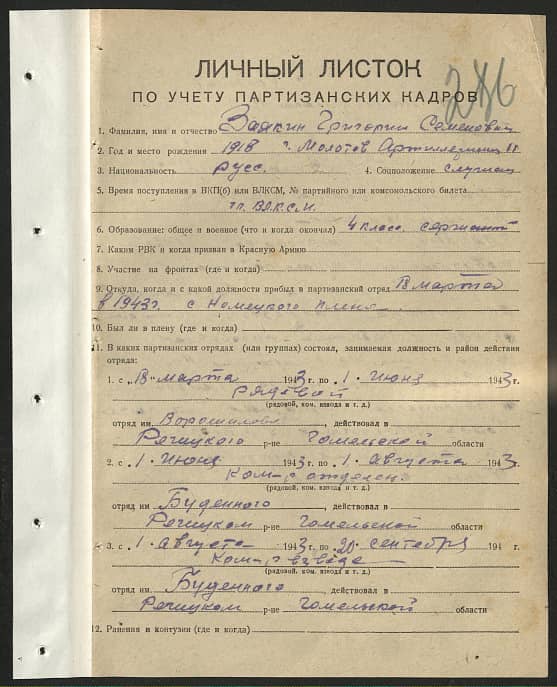 ЛИЧНЫЙ ЛИСТОК
286
ПО УЧЕТУ ПАРТИЗАНСКИХ КАДРОВ
1. Фамилия, имя и отчество Заякин Григорий Семенович
2. Год и место рождения 1918 г. Молотов
3. Национальность русс. 4. Соцположение служащ
5. Время поступления в ВКП(б) или ВЛКСМ, № партийного или комсомольского билета
чл. ВЛКСМ.
6. Образование: общее и военное (что и когда окончал) 4 класса
7. Каким РВК и когда призван в Красную Армию
8. Участие на фронтах (где и когда)
9. Откуда, когда и с какой должности прибыл в партизанский отряд 18 марта
в 1943 г. с Немецкого плена
10. Был ли в плену (где и когда)
11. В каких партизанских отрядах (или группах) состоял, занимаемая должность и район действия
отряда:
1. с „18" марта 1943 г. по „1. Июня 1943 г.
рядовой
(рядовой, ком. взвода и т. д.)
отряд им Ворошилова, действовал в
Речицкого р-не Гомельской области
2. с „1. Июня 1943 г. по „1. Августа 1943 г.
Ком-р отделен.
(рядовой, ком. взвода и т. д.)
отряд им Буденного, действовал в
Речицком р-не Гомельской области
3. с „1. Августа 1943 г. по „20. сентября 194 г.
Ком-р взвода
(рядовой, ком. взвода и т. д.)
отряд им Буденного действовал в
Речицком р-не Гомельской области
12. Ранения и контузии (где и когда)